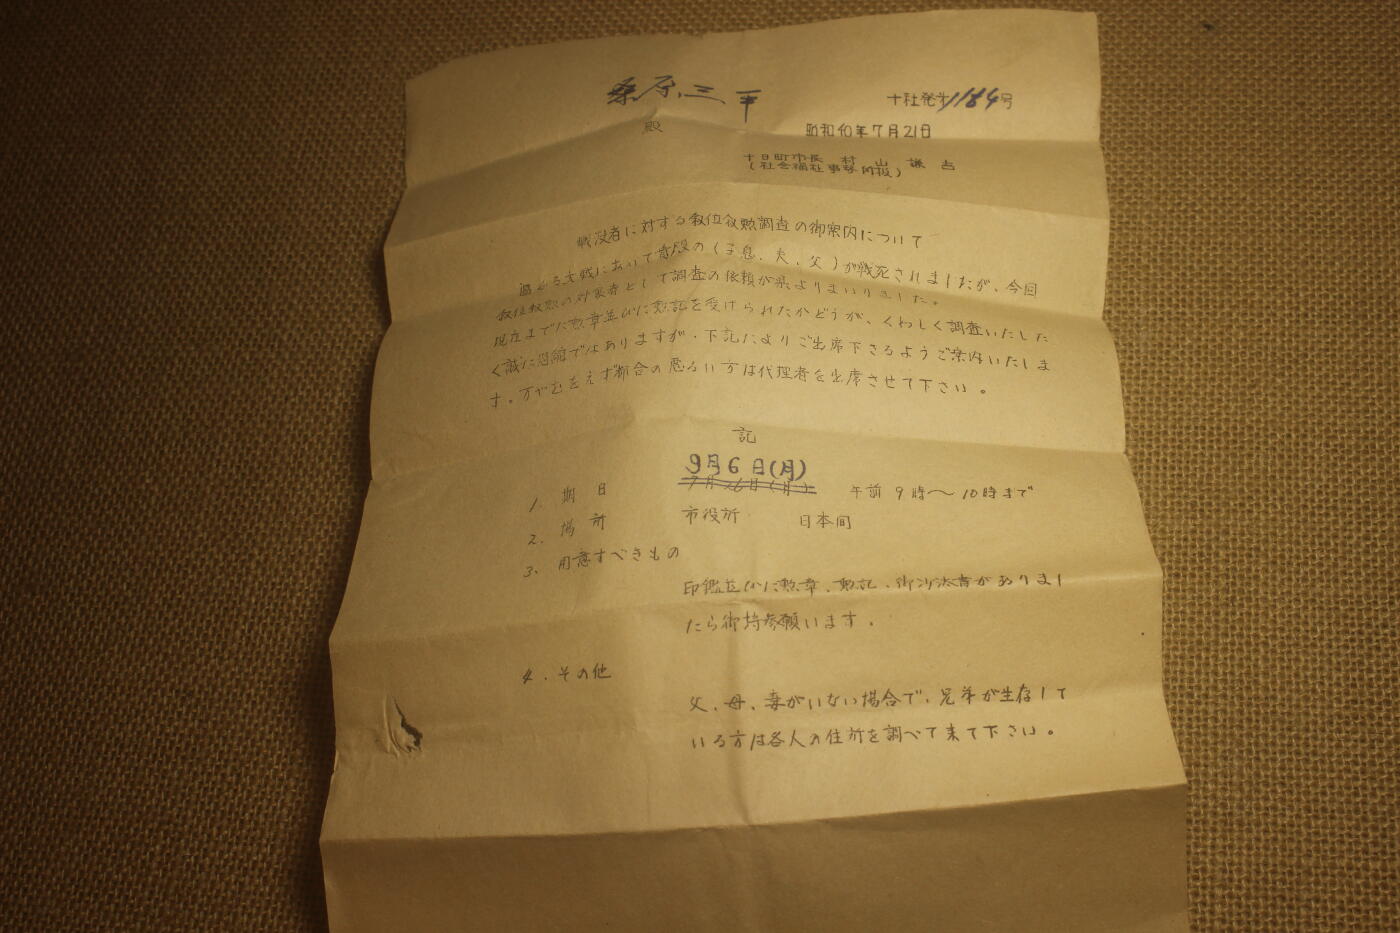 桑原三平
十社発第1184号
殿
昭和40年7月21日
十日町市長 村山謙吉
(社会福祉事務所扱)
戦没者に対する叙位叙勲調査の御案内について
過ぐる大戦において貴殿の(子息、夫、父)が戦死されましたが、今回
叙位叙勲の対象者として調査の依頼が県よりまいりました。
現在までに勲章並びに勲記を受けられたかどうか、くわしく調査いたした
く誠に恐縮ではありますが、下記によりご出席下さるようご案内いたしま
す。万やむをえず都合の悪るい方は代理者を出席させて下さい。
記
9月6日(月)
1. 期日 7月26日(月) 午前9時〜10時まで
2. 場所 市役所 日本間
3. 用意すべきもの
印鑑並びに勲章、勲記、御沙汰書がありまし
たら御持参願います。
4. その他
父、母、妻がいない場合で、兄弟が生存して
いる方は各人の住所を調べて来て下さい。